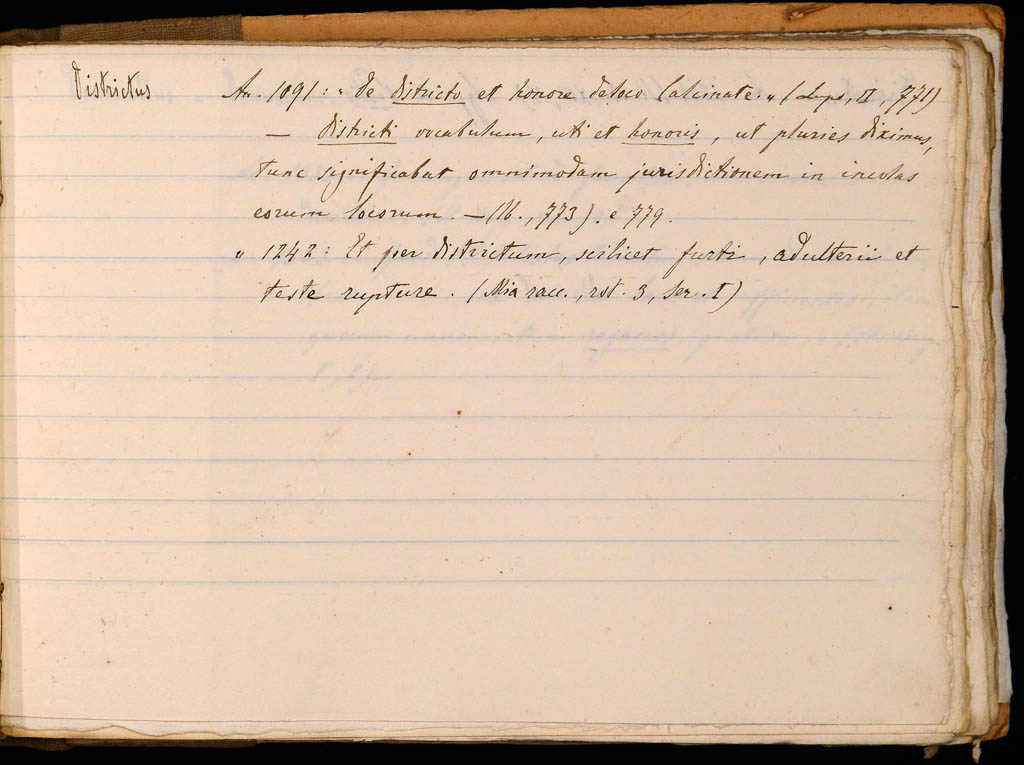 Districtus An. 1091: „ De districto et honore de loco Calcinate. „ (Lupo, II, 771)
— districti vocabulum, uti et honoris, ut pluries diximus,
tunc significabat omnimodam jurisdictionem in incolas
eorum locorum. — (Ib., 773). e 779.
„ 1242: Et per districtum, scilicet furti, adulterii et
teste rupture. (Mia racc., rot. 3, Ser. I)